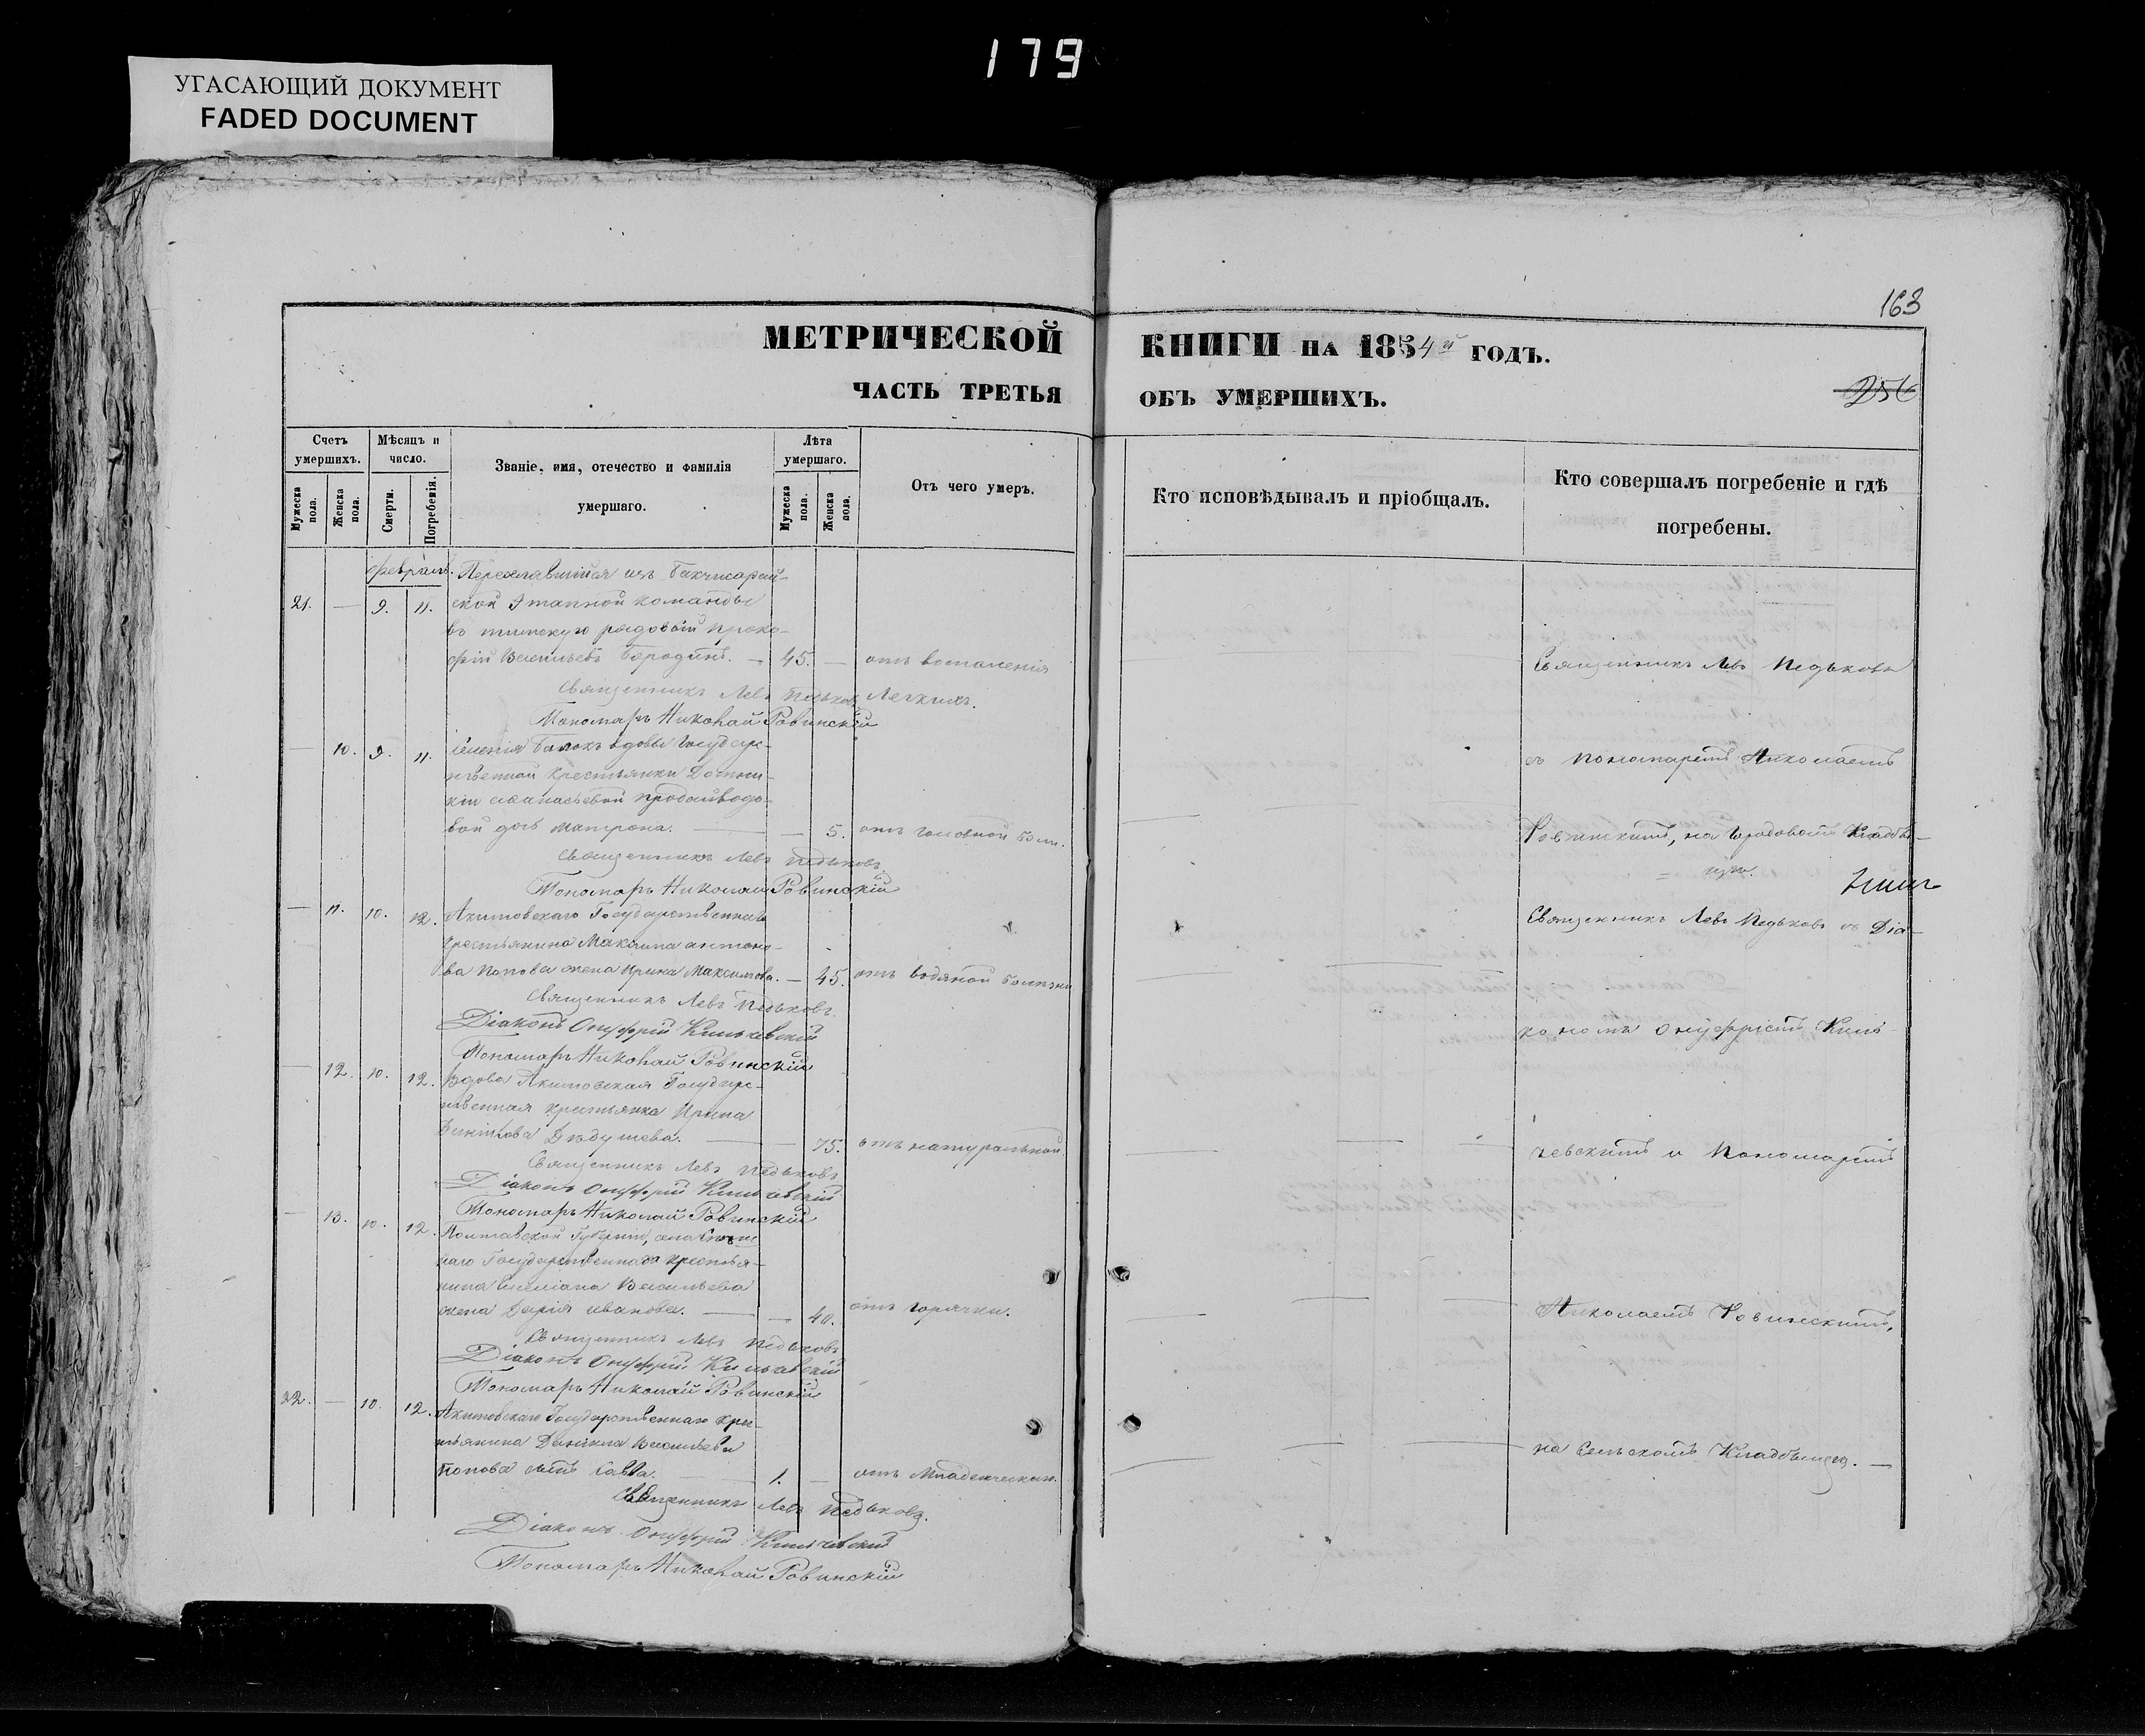 179
УГАСАЮЩИЙ ДОКУМЕНТ
FADED DOCUMENT
163
МЕТРИЧЕСКОЙ КНИГИ НА 1854й ГОДЪ.
ЧАСТЬ ТРЕТЬЯ ОБЪ УМЕРШИХЪ.
256
Счетъ умершихъ.
Мужеска пола.
Женска пола.
Мѣсяцъ и число.
Смерти.
Погребенія.
Званіе, имя, отечество и фамилія умершаго.
Лѣта умершаго.
Мужеска пола.
Женска пола.
Отъ чего умеръ.
Кто исповѣдывалъ и пріобщалъ.
Кто совершалъ погребеніе и гдѣ погребены.
Февраль.
изъ Бахчисарай-
21. — 9. 11. ской Этапной команды
въ рядовой Проко-
фій Васильевъ Бородинъ. — 45. — отъ воспаленія
Священникъ Левъ Педьковъ легкихъ.
Пономарь Николай Ровинскій
— 10. 9. 11. селенія вдовы Государ-
ственной крестьянки
вой дочь Матрона. — — 5. отъ головной боли.
Священникъ Левъ Педьковъ
Пономарь Николай Ровинскій
— 11. 10. 12. Акимовскаго Государственнаго
крестьянина Максима Антоно-
ва Попова жена Ирина Максимова. — 45. отъ водяной болѣзни
Священникъ Левъ Педьковъ
Діаконъ Онуфрій Кильчевскій
Пономарь Николай Ровинскій
— 12. 10. 12. Вдова Акимовская Государ-
ственная крестьянка Ирина
Дѣдушева. — — 75. отъ натуральной.
Священникъ Левъ Педьковъ
Діаконъ Онуфрій Кильчевскій
Пономарь Николай Ровинскій
— 13. 10. 12. Полтавской Губерніи, села
наго Государственнаго крестья-
нина Емеліана Васильева
жена Дарія Иванова. — — 40. отъ горячки.
Священникъ Левъ Педьковъ
Діаконъ Онуфрій Кильчевскій
Пономарь Николай Ровинскій
22. — 10. 12. Акимовскаго Государственнаго кре-
стьянина Даніила Васильева
Попова сынъ Савва. — 1. — отъ младенческой.
Священникъ Левъ Педьковъ.
Діаконъ Онуфрій Кильчевскій
Пономарь Николай Ровинскій
Священникъ Левъ Педьковъ
съ Пономаремъ Николаемъ
Ровинскимъ, на Городовомъ Кладби-
щѣ.
Священникъ Левъ Педьковъ съ Діа-
кономъ Онуфріемъ Киль-
чевскимъ и Пономаремъ
Николаемъ Ровинскимъ,
на Сельскомъ Кладбищѣ. —